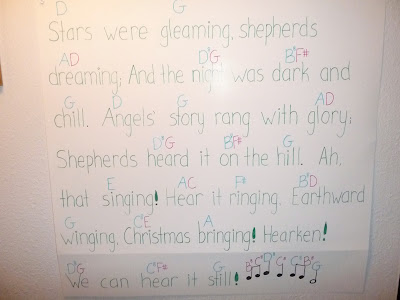 D G
Stars were gleaming, shepherds
AD D#G B#F#
dreaming; And the night was dark and
G D G AD
chill. Angels' story rang with glory;
D#G B#F# G
Shepherds heard it on the hill. Ah,
E AC F# B#D
that singing! Hear it ringing, Earthward
G C#E A
winging, Christmas bringing! Hearken!
D#G C#F# G
We can hear it still!